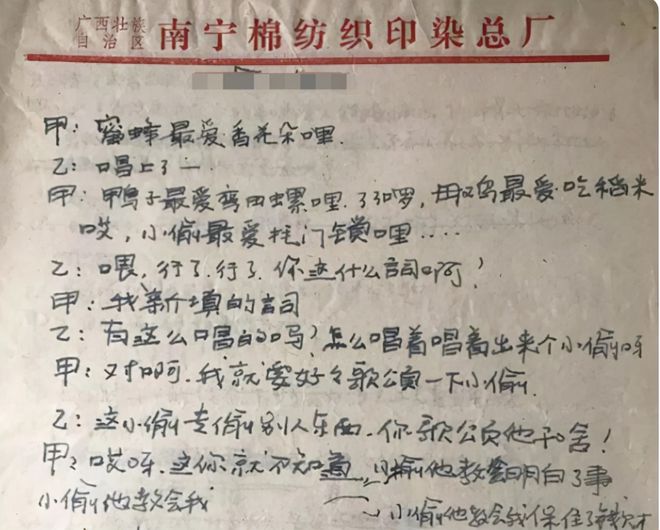 广西壮族
自治区 南宁棉纺织印染总厂
甲：蜜蜂最爱香花朵哩.
乙：唱上了一
甲：鸭子最爱弯田螺哩.了啰，最爱吃稻米
哎，小偷最爱挂门锁哩....
乙：喂，行了.行了.你这什么词啊？
甲：我新填的词
乙：有这么唱的吗？怎么唱着唱着出来个小偷呀
甲：对啊.我就要好々歌颂一下小偷.
乙：这小偷专偷别人东西.你歌颂他干啥！
甲：哎呀.这你就不知道 小偷他教会明白了事
小偷他教会我
小偷他教会我保住了钱才